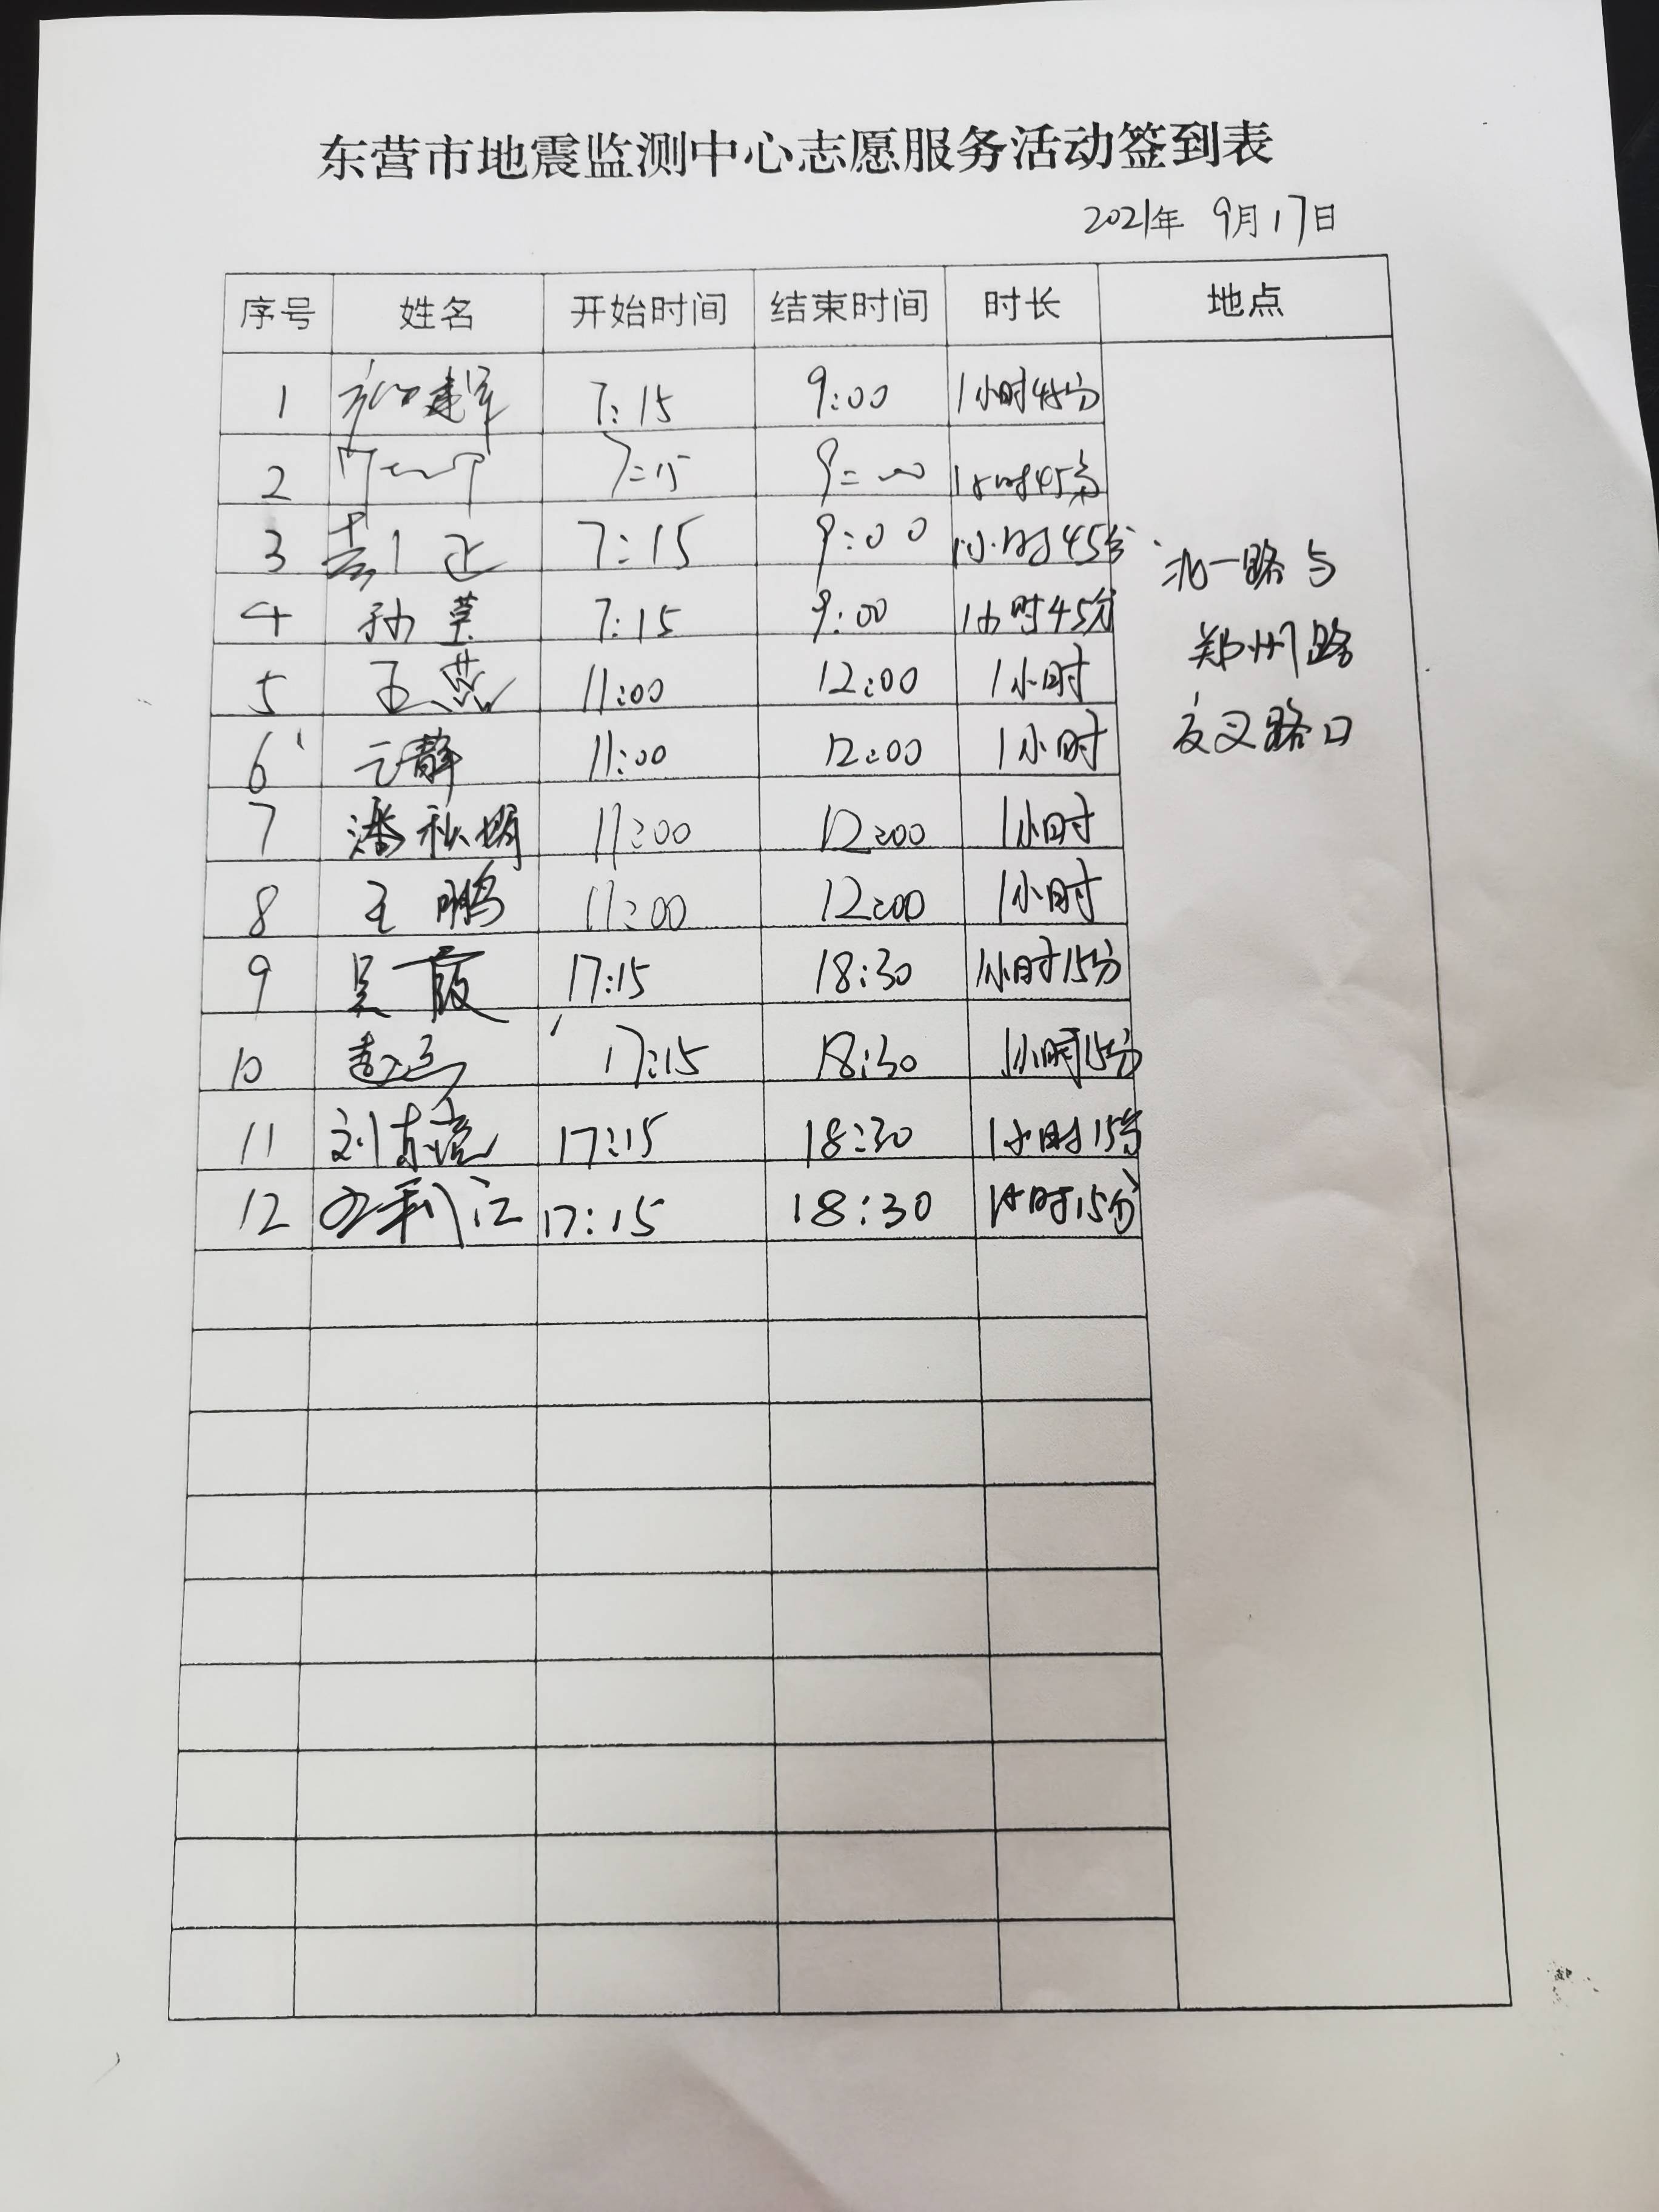 东营市地震监测中心志愿服务活动签到表
2021年 9月17日
序号 姓名 开始时间 结束时间 时长 地点
1 建军 7:15 9:00 1小时45分
2 7:15 9:00 1小时45分
3 7:15 9:00 1小时45分
4 孙莹 7:15 9:00 1小时45分
5 王燕 11:00 12:00 1小时
6 云静 11:00 12:00 1小时
7 潘秋娟 11:00 12:00 1小时
8 王鹏 11:00 12:00 1小时
9 吴霞 17:15 18:30 1小时15分
10 17:15 18:30 1小时15分
11 刘 17:15 18:30 1小时15分
12 利江 17:15 18:30 1小时15分
北一路与
郑州路
交叉路口